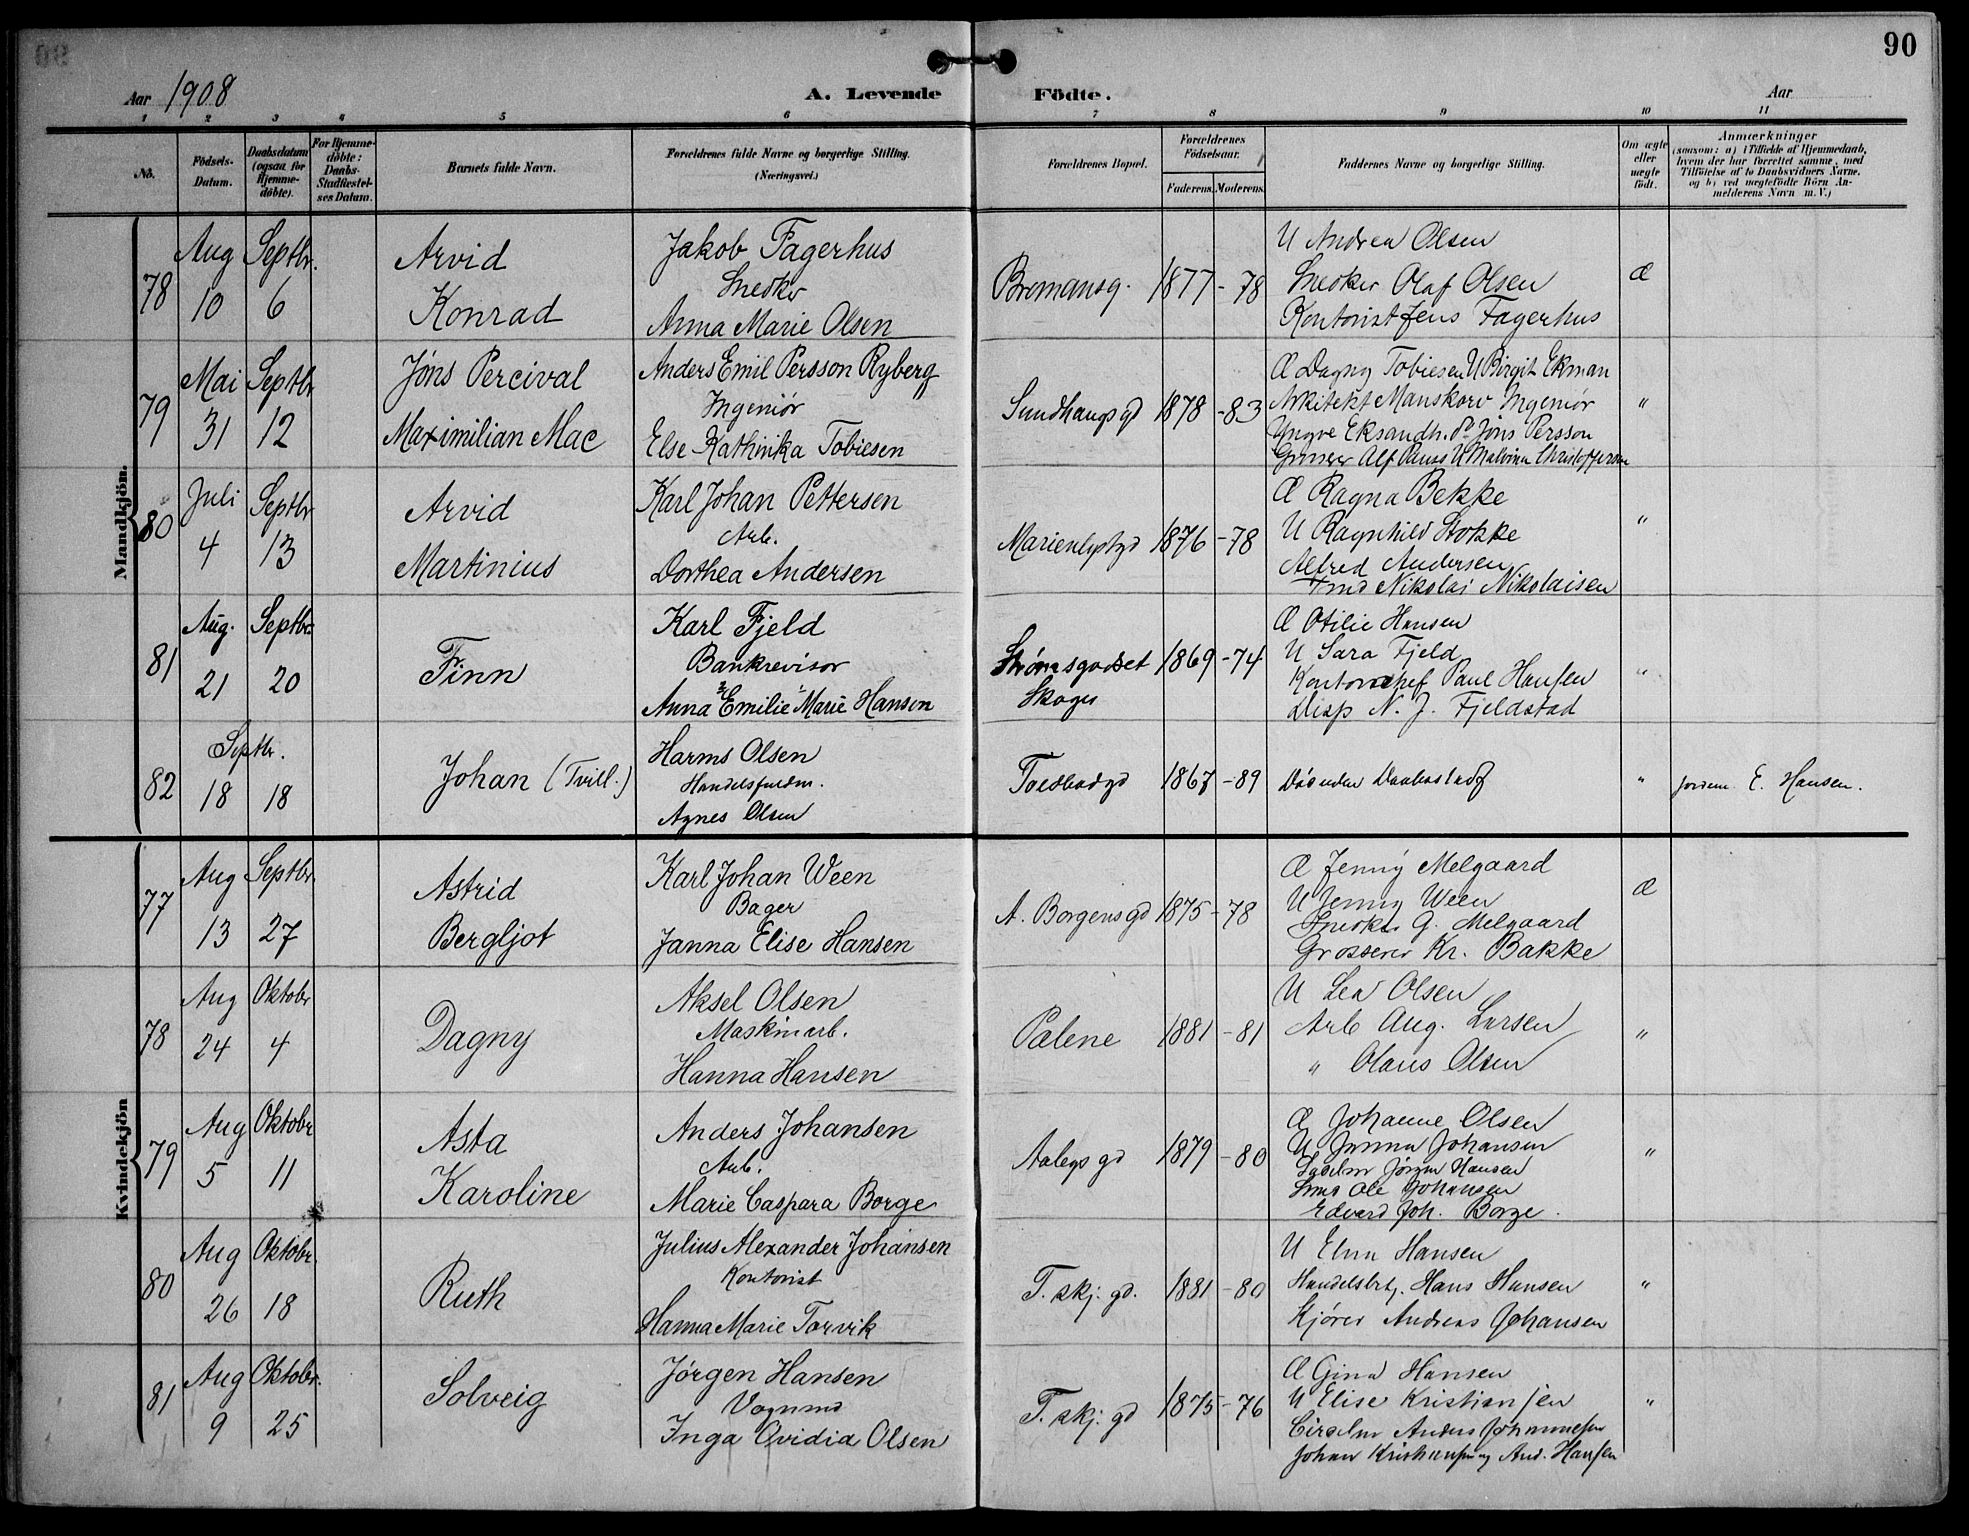 90
Aar 1908
A. Levende Födte.
Aar
1 2 3 4 5 6 7 8 9 10 11
No.
Födsels-Datum.
Daabsdatum (ogsaa for Hjemmedöbte).
For Hjemmedöbte: Daabs-Stadfæstelses Datum.
Barnets fulde Navn.
Forældrenes fulde Navne og borgerlige Stilling.
(Næringsvei.)
Forældrenes Bopæl.
Forældrenes Födselsaar.
Faderens. Moderens.
Faddernes Navne og borgerlige Stilling.
Om ægte eller uægte födt.
Anmærkninger
(saasom: a) i Tilfælde af Hjemmedaab, hvem der har forrettet samme, med Tilföielse af to Daabsvidners Navne, og b) ved uægtefödte Börn Anmelderens Navn m. V.)
Mandkjön.
78
Aug 10
Septbr. 6
Arvid
Konrad
Jakob Fagerhus
Snedker
Anna Marie Olsen
Bromansg.
1877 - 78
U Andrea Olsen
Snedker Olaf Olsen
Kontorist Jens Fagerhus
Æ
79
Mai 31
Septbr 12
Jóns Percival
Maximilian Mac
Anders Emil Persson Ryberg
Ingeniør
Else Kathinka Tobiesen
Sundhaugsgd
1878 - 83
Æ Dagny Tobiesen U Birgit Ekman
Arkitekt Manskow Ingeniør
Yngve Eksandh. Do Jóns Persson
Alf Paus U Malvina Christophersen
"
80
Juli 4
Septbr 13
Arvid
Martinius
Karl Johan Pettersen
Arb.
Dorthea Andersen
Marienlystgd
1876 - 78
Æ Ragna Bekke
U Ragnhild Stokke
Alfred Andersen
Smd Nikolai Nikolaisen
"
81
Aug. 21
Septbr. 20
Finn
Karl Fjeld
Bankrevisor
Anna Emilie Marie Hansen
Strømsgodset
Skoger
1869 - 74
Æ Otilie Hansen
U Sara Fjeld
Kontorchef Paul Hansen
Disp N. J. Fjeldstad
"
82
Septbr.
18 18
Johan (Tvill.)
Harms Olsen
Handelsfuldm.
Agnes Olsen
Toldbodgd
1867 - 89
Død uden Daabsstadf
"
Jordem. E. Hansen.
Kvindekjön
77
Aug 13
Septbr. 27
Astrid
Bergljot
Karl Johan Ween
Bager
Janna Elise Hansen
A. Borgensgd
1875 - 78
Æ Jenny Melgaard
U Jenny Ween
Snedker G. Melgaard
Grosserer Kr. Bakke
Æ
78
Aug 24
Oktobr 4
Dagny
Aksel Olsen
Maskinarb.
Hanna Hansen
Palene
1881 - 81
U Lea Olsen
Arb Aug. Larsen
" Olaus Olsen
"
79
Aug 5
Oktobr 11
Asta
Karoline
Anders Johansen
Arb.
Marie Caspara Borge
Aalegsgd
1879 - 80
Æ Johanne Olsen
U Johansen
Jørgen Hansen
Smd Ole Johansen
Edvard Joh. Borge.
"
80
Aug 26
Oktobr. 18
Ruth
Julius Alexander Johansen
Kontorist
Hanna Marie Torvik
T. skj. gd.
1881 - 80
U Elna Hansen
Handelsbetj. Hans Hansen
Kjører Andreas Johansen
"
81
Aug 9
Oktobr. 25
Solveig
Jørgen Hansen
Vognmd
Inga Ovidia Olsen
T. skj. gd
1875 - 76
Æ Gina Hansen
U Elise Kristiansen
Anders Johannesen
Johan Kristiansen og And. Hansen
"